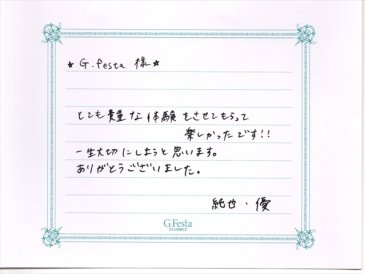 ★ G.festa 様 ★
とても貴重な体験をさせてもらって
楽しかったです!!
一生大切にしようと思います。
ありがとうございました。
純也・優
G.Festa
DIAMOND